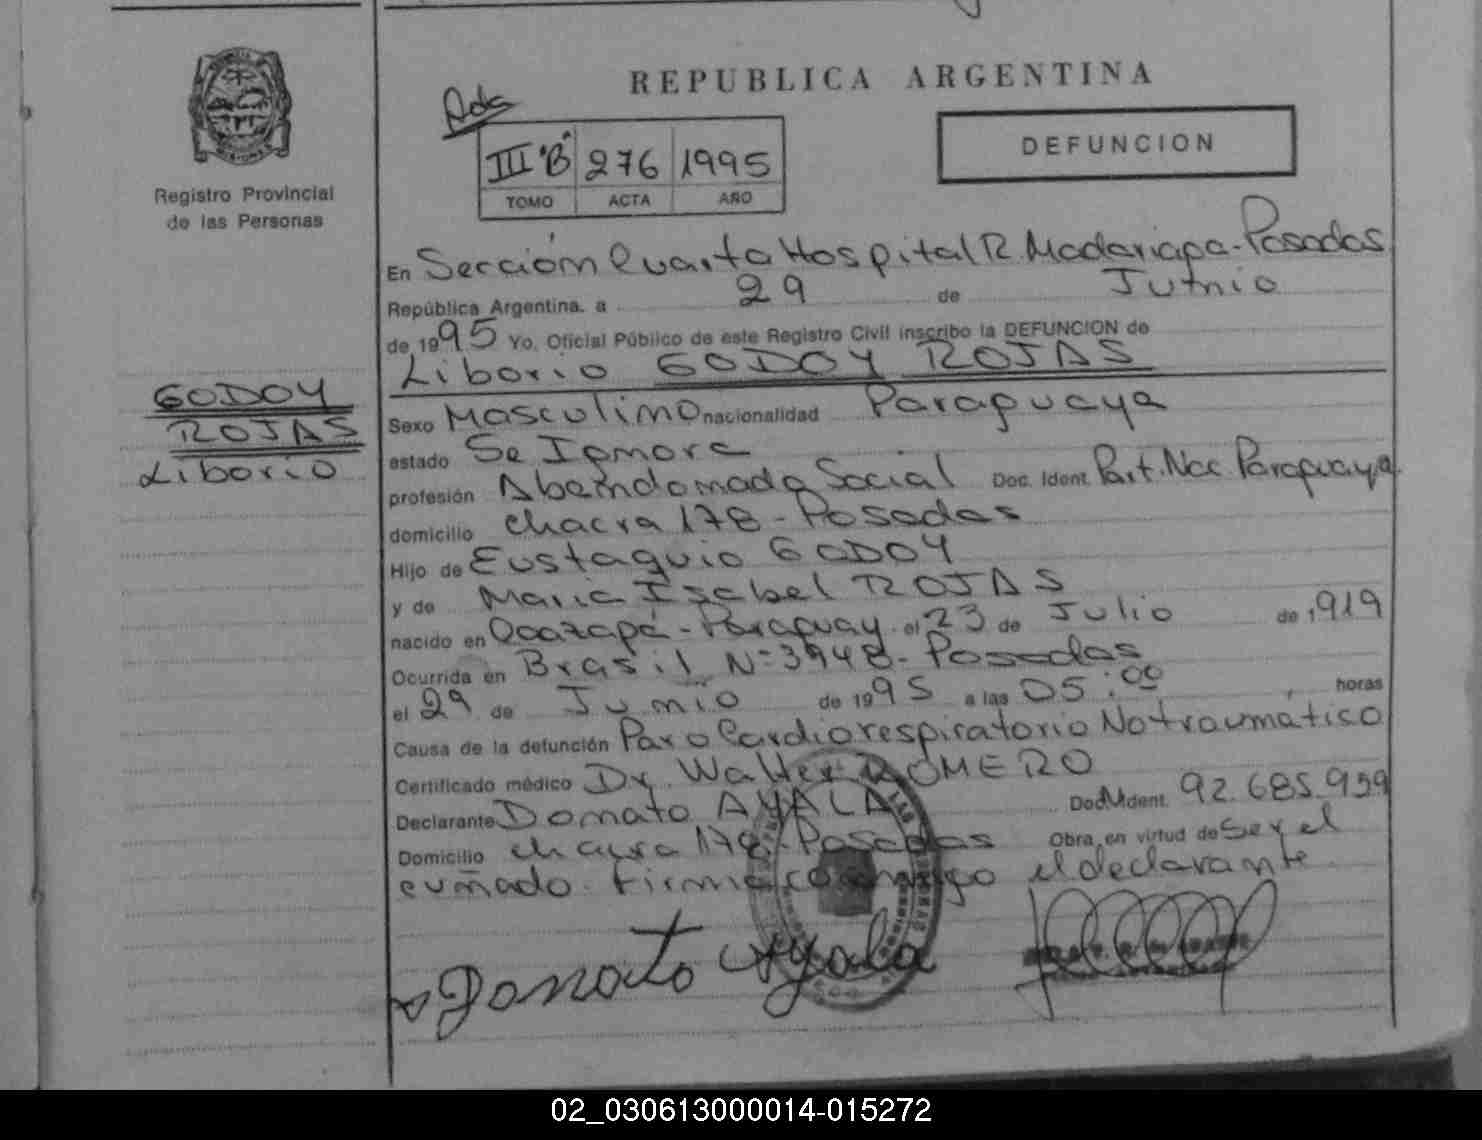 REPUBLICA ARGENTINA
Ads
III "B" 276 1995
TOMO ACTA AÑO
DEFUNCION
MISIONES
Registro Provincial
de las Personas
GODOY
ROJAS
Liborio
En Sección Cuarta Hospital R. Madariaga - Posadas
República Argentina, a 29 de Junio
de 1995 Yo, Oficial Público de este Registro Civil inscribo la DEFUNCION de
Liborio GODOY ROJAS
Sexo Masculino nacionalidad Paraguaya
estado Se Ignora
profesión Abandonado Social Doc. Ident. Part. Nac. Paraguaya
domicilio Chacra 178 - Posadas
Hijo de Eustaquio GODOY
y de Maria Isabel ROJAS
nacido en Caazapá - Paraguay el 23 de Julio de 1919
Ocurrida en Brasil N° 3948 - Posadas
el 29 de Junio de 1995 a las 05:00 horas
Causa de la defunción Paro Cardiorespiratorio No traumático
Certificado médico Dr. Walter ROMERO
Declarante Donato AYALA Doc. Ident. 92.685.959
Domicilio Chacra 178 - Posadas Obra en virtud de Ser el
cuñado. Firma conmigo el declarante
Donato Ayala
02_030613000014-015272